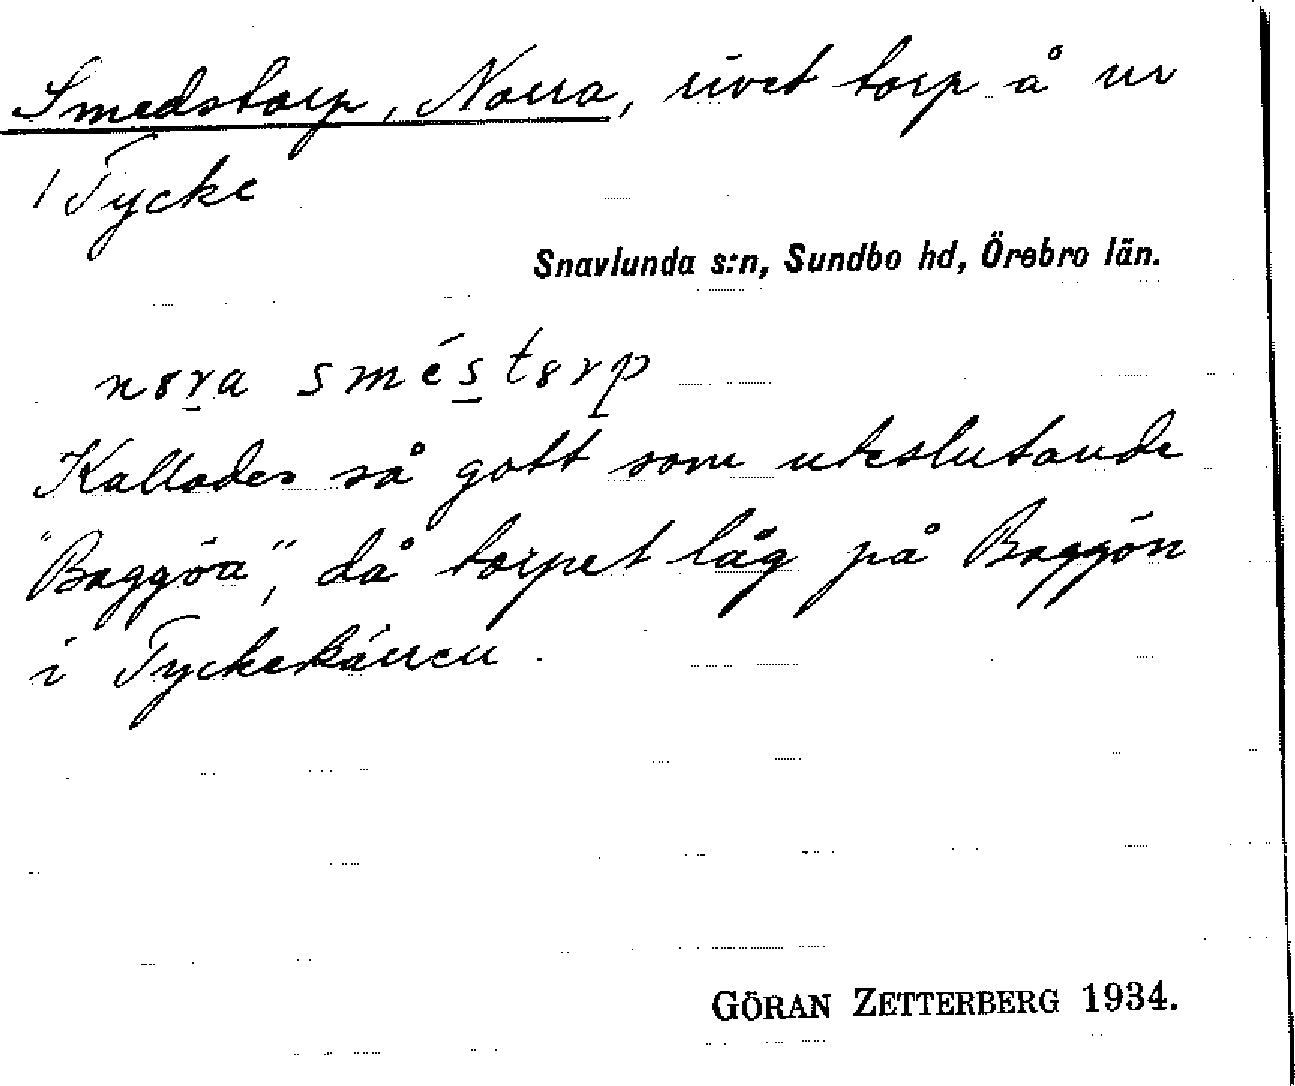 Smedstorp, Norra, rivet torp å nr
1 Tycke
Snavlunda s:n, Sundbo hd, Örebro län.
nora sméstorp
Kallades så gott som uteslutande
"Baggöa", då torpet låg på Baggön
i Tyckekärren.
GÖRAN ZETTERBERG 1934.